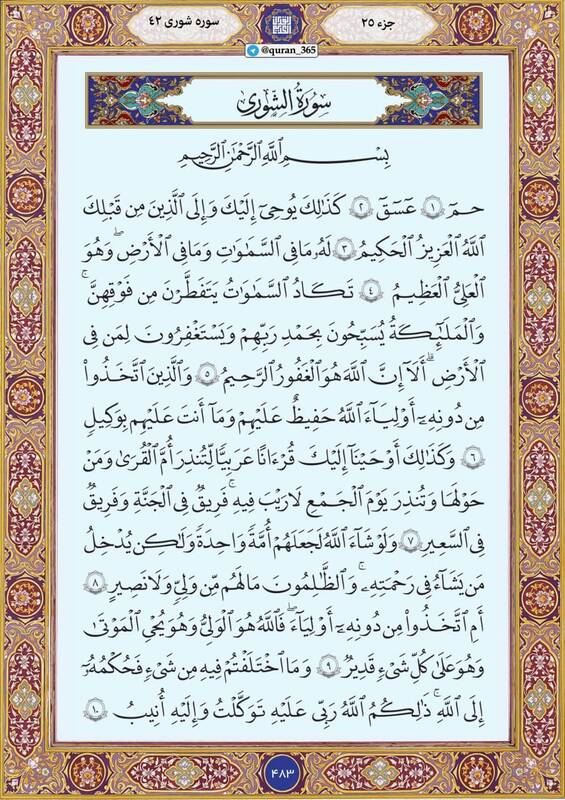 جزء ۲۵
سوره شوری ۴۲
@quran_365
سُورَةُ الشُّورَى
بِسْمِ ٱللَّهِ ٱلرَّحْمَٰنِ ٱلرَّحِيمِ
حمٓ ١ عٓسٓقٓ ٢ كَذَٰلِكَ يُوحِىٓ إِلَيْكَ وَإِلَى ٱلَّذِينَ مِن قَبْلِكَ
ٱللَّهُ ٱلْعَزِيزُ ٱلْحَكِيمُ ٣ لَهُۥ مَا فِى ٱلسَّمَٰوَٰتِ وَمَا فِى ٱلْأَرْضِ ۖ وَهُوَ
ٱلْعَلِىُّ ٱلْعَظِيمُ ٤ تَكَادُ ٱلسَّمَٰوَٰتُ يَتَفَطَّرْنَ مِن فَوْقِهِنَّ ۚ
وَٱلْمَلَٰٓئِكَةُ يُسَبِّحُونَ بِحَمْدِ رَبِّهِمْ وَيَسْتَغْفِرُونَ لِمَن فِى
ٱلْأَرْضِ ۗ أَلَآ إِنَّ ٱللَّهَ هُوَ ٱلْغَفُورُ ٱلرَّحِيمُ ٥ وَٱلَّذِينَ ٱتَّخَذُوا۟
مِن دُونِهِۦٓ أَوْلِيَآءَ ٱللَّهُ حَفِيظٌ عَلَيْهِمْ وَمَآ أَنتَ عَلَيْهِم بِوَكِيلٍ
٦ وَكَذَٰلِكَ أَوْحَيْنَآ إِلَيْكَ قُرْءَانًا عَرَبِيًّا لِّتُنذِرَ أُمَّ ٱلْقُرَىٰ وَمَنْ
حَوْلَهَا وَتُنذِرَ يَوْمَ ٱلْجَمْعِ لَا رَيْبَ فِيهِ ۚ فَرِيقٌ فِى ٱلْجَنَّةِ وَفَرِيقٌ
فِى ٱلسَّعِيرِ ٧ وَلَوْ شَآءَ ٱللَّهُ لَجَعَلَهُمْ أُمَّةً وَٰحِدَةً وَلَٰكِن يُدْخِلُ
مَن يَشَآءُ فِى رَحْمَتِهِۦ ۚ وَٱلظَّٰلِمُونَ مَا لَهُم مِّن وَلِىٍّ وَلَا نَصِيرٍ ٨
أَمِ ٱتَّخَذُوا۟ مِن دُونِهِۦٓ أَوْلِيَآءَ ۖ فَٱللَّهُ هُوَ ٱلْوَلِىُّ وَهُوَ يُحْىِ ٱلْمَوْتَىٰ
وَهُوَ عَلَىٰ كُلِّ شَىْءٍ قَدِيرٌ ٩ وَمَا ٱخْتَلَفْتُمْ فِيهِ مِن شَىْءٍ فَحُكْمُهُۥٓ
إِلَى ٱللَّهِ ۚ ذَٰلِكُمُ ٱللَّهُ رَبِّى عَلَيْهِ تَوَكَّلْتُ وَإِلَيْهِ أُنِيبُ ١٠
۴۸۳